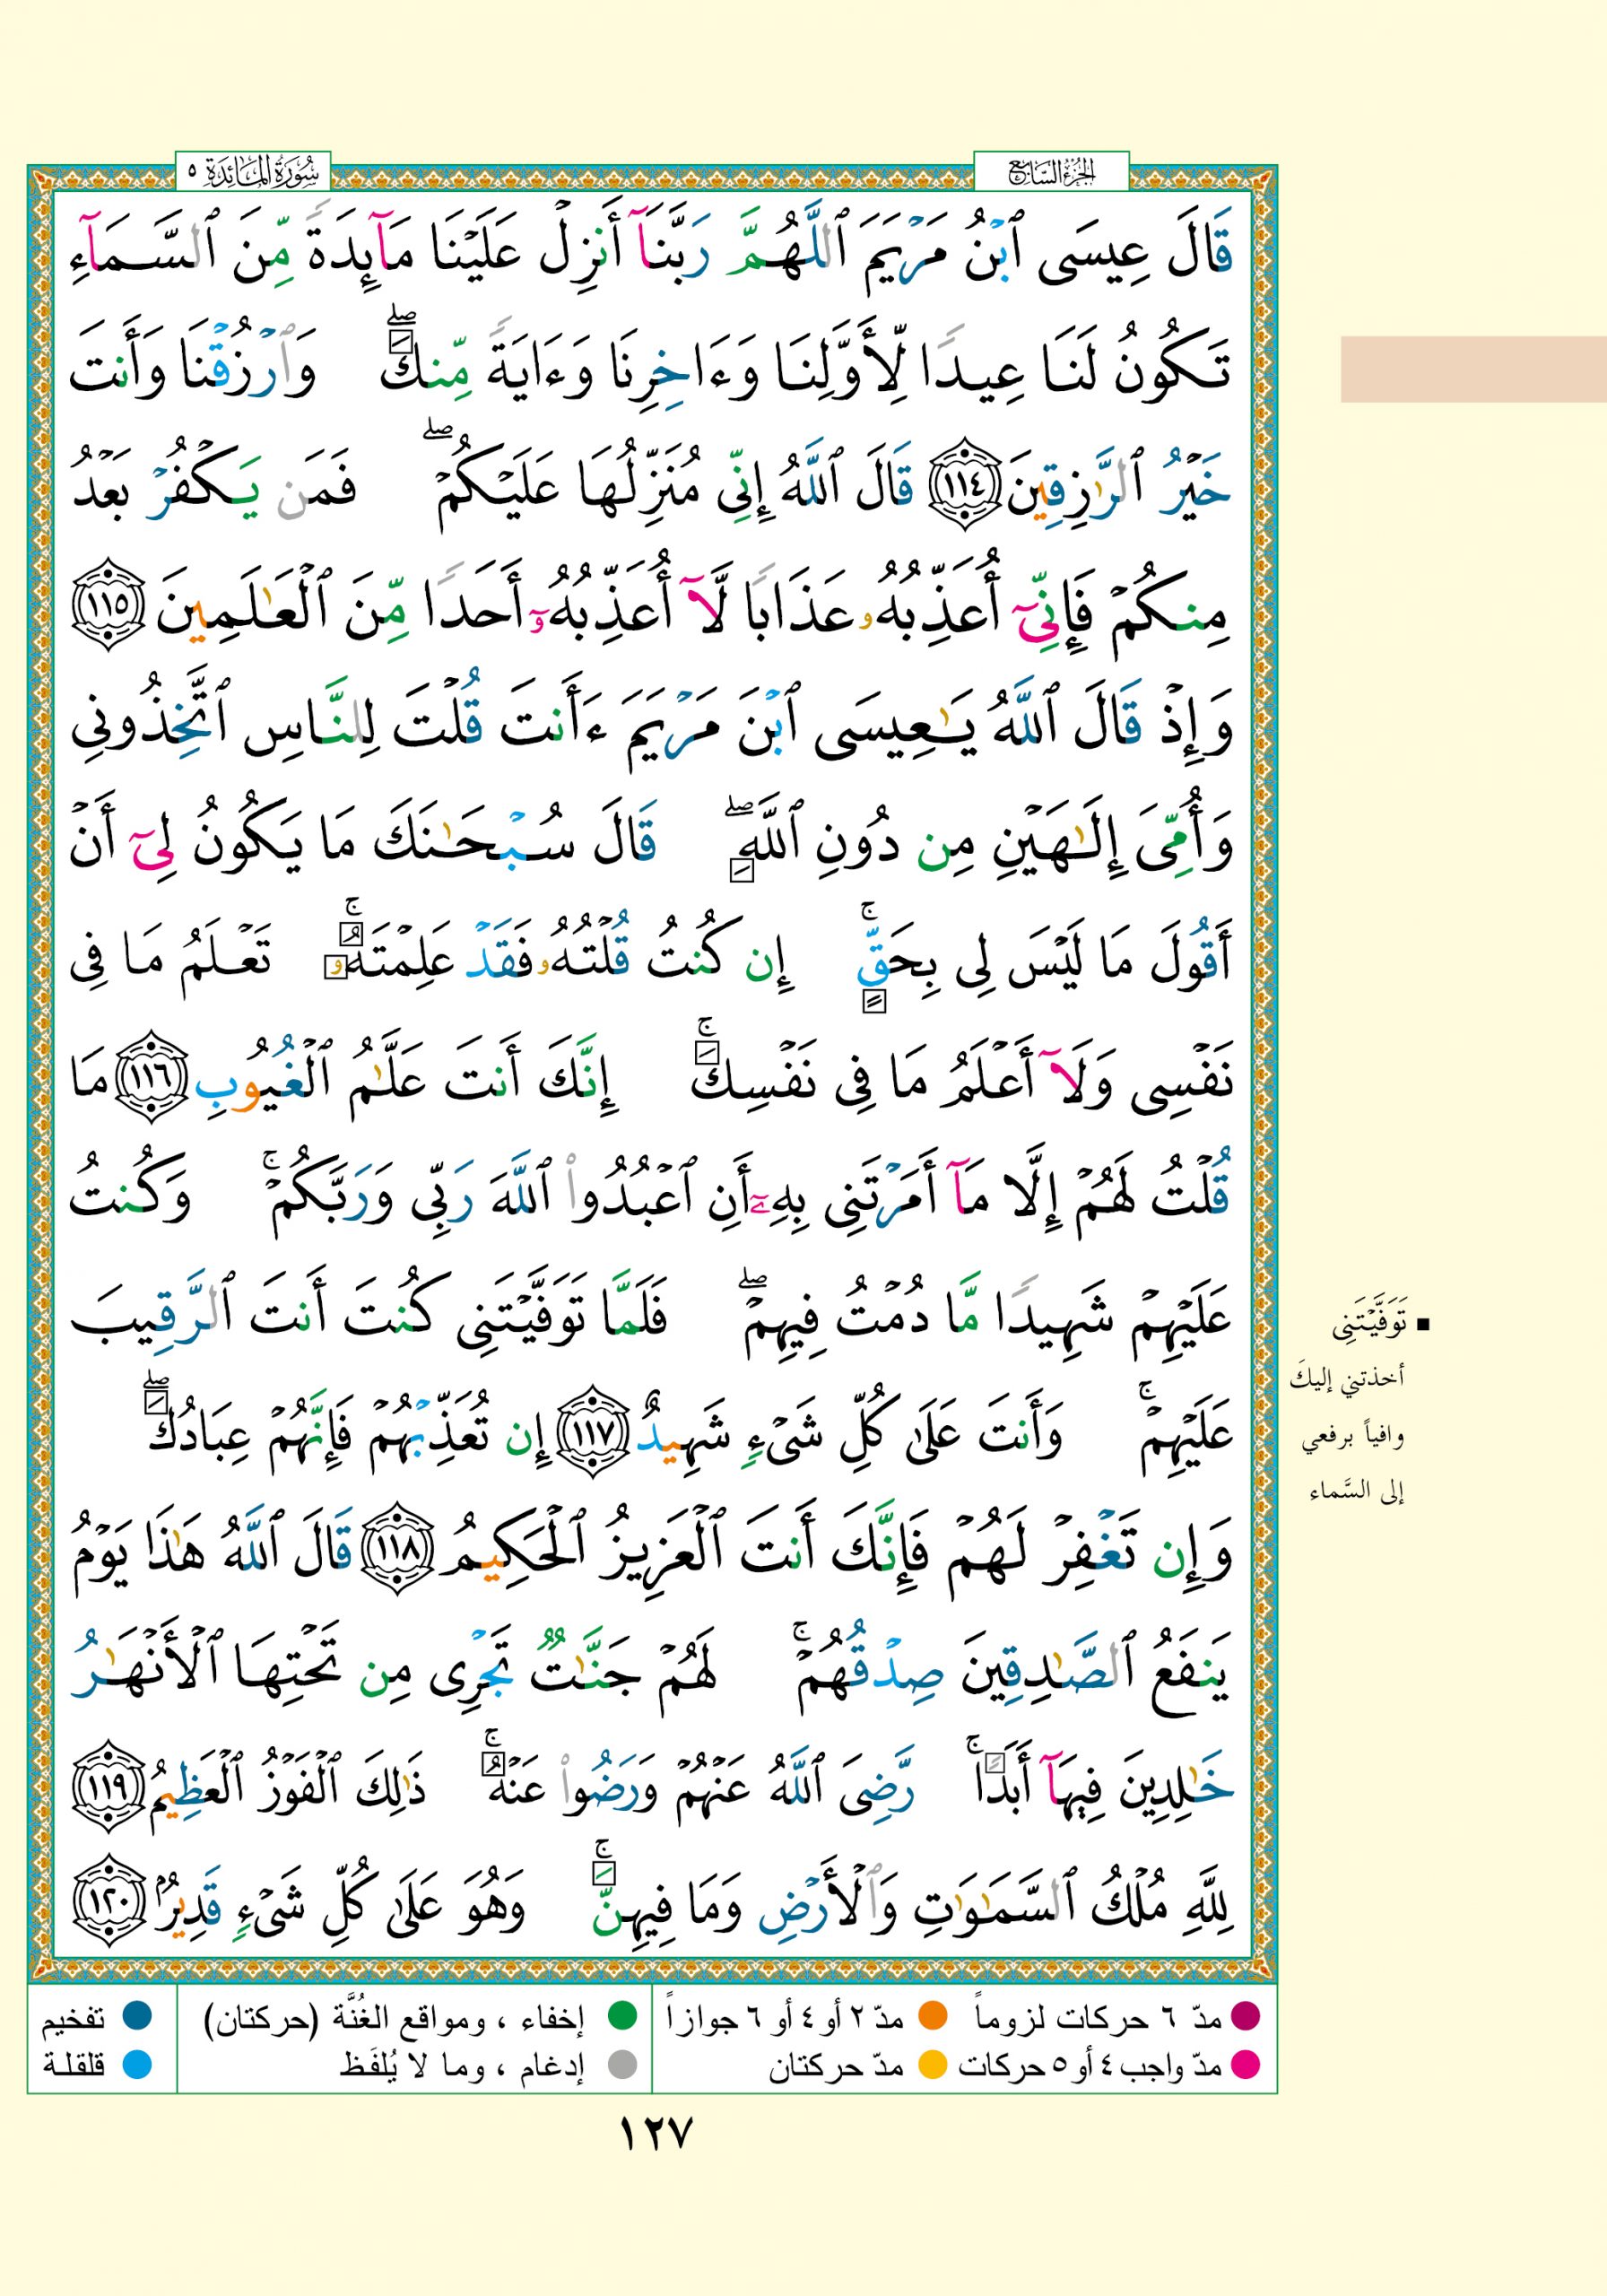 الجزء السابع
سورة المائدة ٥
قَالَ عِيسَى ٱبۡنُ مَرۡيَمَ ٱللَّهُمَّ رَبَّنَآ أَنزِلۡ عَلَيۡنَا مَآئِدَةٗ مِّنَ ٱلسَّمَآءِ
تَكُونُ لَنَا عِيدٗا لِّأَوَّلِنَا وَءَاخِرِنَا وَءَايَةٗ مِّنكَۖ وَٱرۡزُقۡنَا وَأَنتَ
خَيۡرُ ٱلرَّٰزِقِينَ ١١٤ قَالَ ٱللَّهُ إِنِّي مُنَزِّلُهَا عَلَيۡكُمۡۖ فَمَن يَكۡفُرۡ بَعۡدُ
مِنكُمۡ فَإِنِّيٓ أُعَذِّبُهُۥ عَذَابٗا لَّآ أُعَذِّبُهُۥٓ أَحَدٗا مِّنَ ٱلۡعَٰلَمِينَ ١١٥
وَإِذۡ قَالَ ٱللَّهُ يَٰعِيسَى ٱبۡنَ مَرۡيَمَ ءَأَنتَ قُلۡتَ لِلنَّاسِ ٱتَّخِذُونِي
وَأُمِّيَ إِلَٰهَيۡنِ مِن دُونِ ٱللَّهِۖ قَالَ سُبۡحَٰنَكَ مَا يَكُونُ لِيٓ أَنۡ
أَقُولَ مَا لَيۡسَ لِي بِحَقٍّۚ إِن كُنتُ قُلۡتُهُۥ فَقَدۡ عَلِمۡتَهُۥۚ تَعۡلَمُ مَا فِي
نَفۡسِي وَلَآ أَعۡلَمُ مَا فِي نَفۡسِكَۚ إِنَّكَ أَنتَ عَلَّٰمُ ٱلۡغُيُوبِ ١١٦ مَا
قُلۡتُ لَهُمۡ إِلَّا مَآ أَمَرۡتَنِي بِهِۦٓ أَنِ ٱعۡبُدُواْ ٱللَّهَ رَبِّي وَرَبَّكُمۡۚ وَكُنتُ
عَلَيۡهِمۡ شَهِيدٗا مَّا دُمۡتُ فِيهِمۡۖ فَلَمَّا تَوَفَّيۡتَنِي كُنتَ أَنتَ ٱلرَّقِيبَ
عَلَيۡهِمۡۚ وَأَنتَ عَلَىٰ كُلِّ شَيۡءٖ شَهِيدٌ ١١٧ إِن تُعَذِّبۡهُمۡ فَإِنَّهُمۡ عِبَادُكَۖ
وَإِن تَغۡفِرۡ لَهُمۡ فَإِنَّكَ أَنتَ ٱلۡعَزِيزُ ٱلۡحَكِيمُ ١١٨ قَالَ ٱللَّهُ هَٰذَا يَوۡمُ
يَنفَعُ ٱلصَّٰدِقِينَ صِدۡقُهُمۡۚ لَهُمۡ جَنَّٰتٞ تَجۡرِي مِن تَحۡتِهَا ٱلۡأَنۡهَٰرُ
خَٰلِدِينَ فِيهَآ أَبَدٗاۚ رَّضِيَ ٱللَّهُ عَنۡهُمۡ وَرَضُواْ عَنۡهُۚ ذَٰلِكَ ٱلۡفَوۡزُ ٱلۡعَظِيمُ ١١٩
لِلَّهِ مُلۡكُ ٱلسَّمَٰوَٰتِ وَٱلۡأَرۡضِ وَمَا فِيهِنَّۚ وَهُوَ عَلَىٰ كُلِّ شَيۡءٖ قَدِيرُۢ ١٢٠
▪ تَوَفَّيۡتَنِي
أخذتني إليكَ
وافياً برفعي
إلى السَّماء
مدّ ٦ حركات لزوماً ● مدّ ٢ أو ٤ أو ٦ جوازاً ● إخفاء ، ومواقع الغُنَّة (حركتان) ● تفخيم
مدّ واجب ٤ أو ٥ حركات ● مدّ حركتان ● إدغام ، وما لا يُلفَظ ● قلقلة
١٢٧